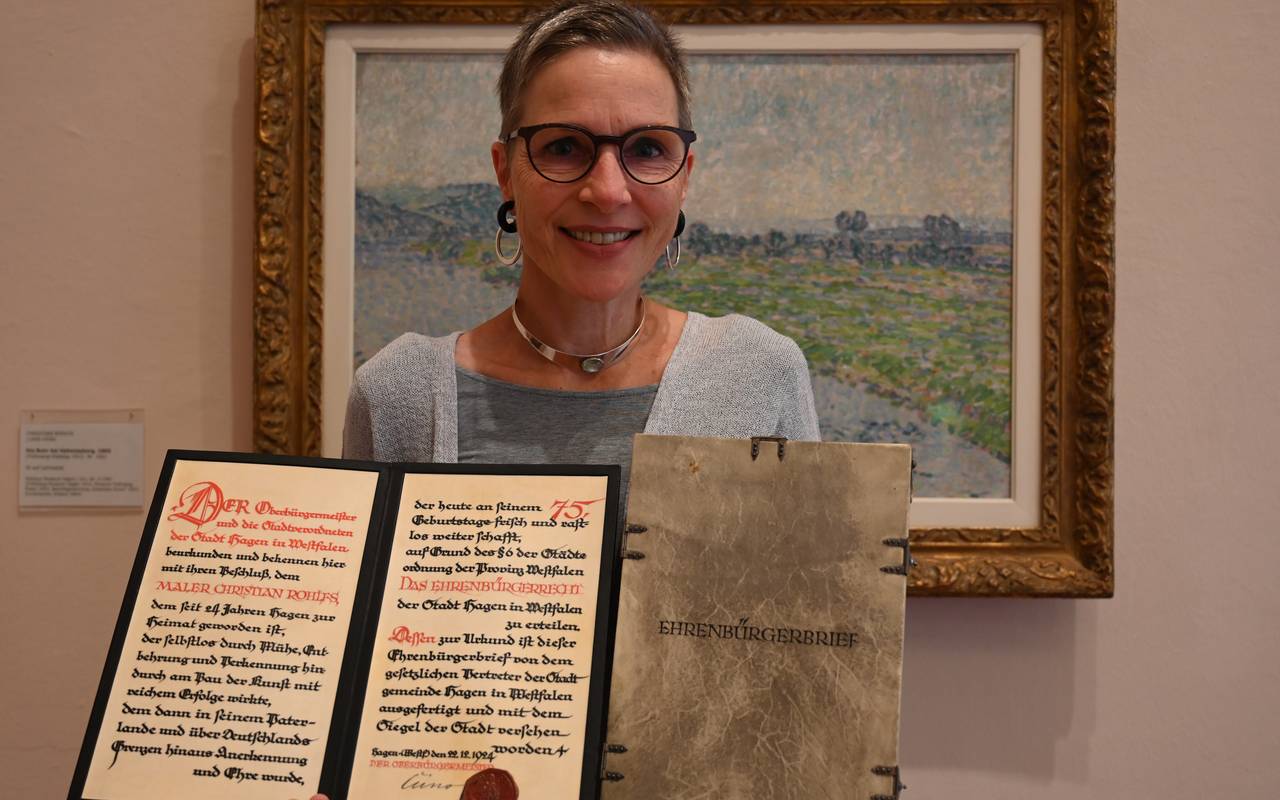 DER Oberbürgermeister
und die Stadtverordneten
der Stadt Hagen in Westfalen
beurkunden und bekennen hier-
mit ihren Beschluß, dem
MALER CHRISTIAN ROHLFS,
dem seit 24 Jahren Hagen zur
Heimat geworden ist,
der selbstlos durch Mühe, Ent-
behrung und Verkennung hin-
durch am Bau der Kunst mit
reichem Erfolge wirkte,
dem dann in seinem Vater-
lande und über Deutschlands
Grenzen hinaus Anerkennung
und Ehre wurde,
der heute an seinem 75.
Geburtstage frisch und rast-
los weiter schafft,
auf Grund des §6 der Städte
ordnung der Provinz Westfalen
DAS EHRENBÜRGERRECHT
der Stadt Hagen in Westfalen
zu erteilen.
Dessen zur Urkund ist dieser
Ehrenbürgerbrief von dem
gesetzlichen Vertreter der Stadt
gemeinde Hagen in Westfalen
ausgefertigt und mit dem
Siegel der Stadt versehen
worden
Hagen (Westf) den 22.12.1924
DER OBERBÜRGERMEISTER
Cuno
EHRENBÜRGERBRIEF